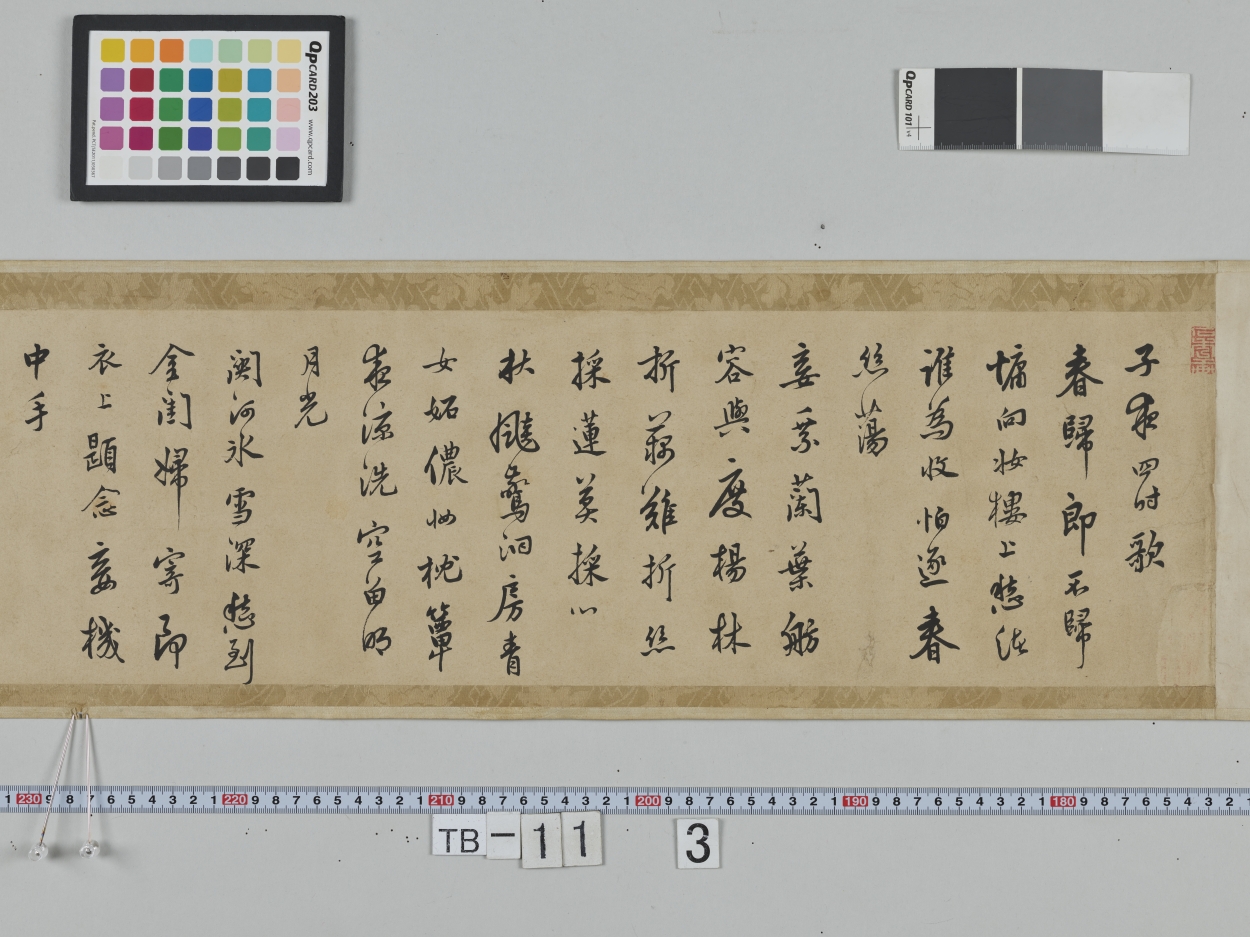 子夜四时歌
春歸郎不歸
慵向妝樓上愁
誰為收怕逐春
絲蕩
妾乘蘭葉舫
容與度楊林
折藕難折絲
採蓮莫採心
秋飈驚洞房青
女妬儂妝枕簟
夜涼洗空留明
月光
関河冰雪深愁到
金閨婦寄郎
衣上題念妾機
中手
QpCARD 203 www.qpcard.com
QpCARD 101 v4
1 230 9 8 7 6 5 4 3 2 1 220 9 8 7 6 5 4 3 2 1 210 9 8 7 6 5 4 3 2 1 200 9 8 7 6 5 4 3 2 1 190 9 8 7 6 5 4 3 2 1 180 9 8 7 6 5 4 3 2
TB-11 3